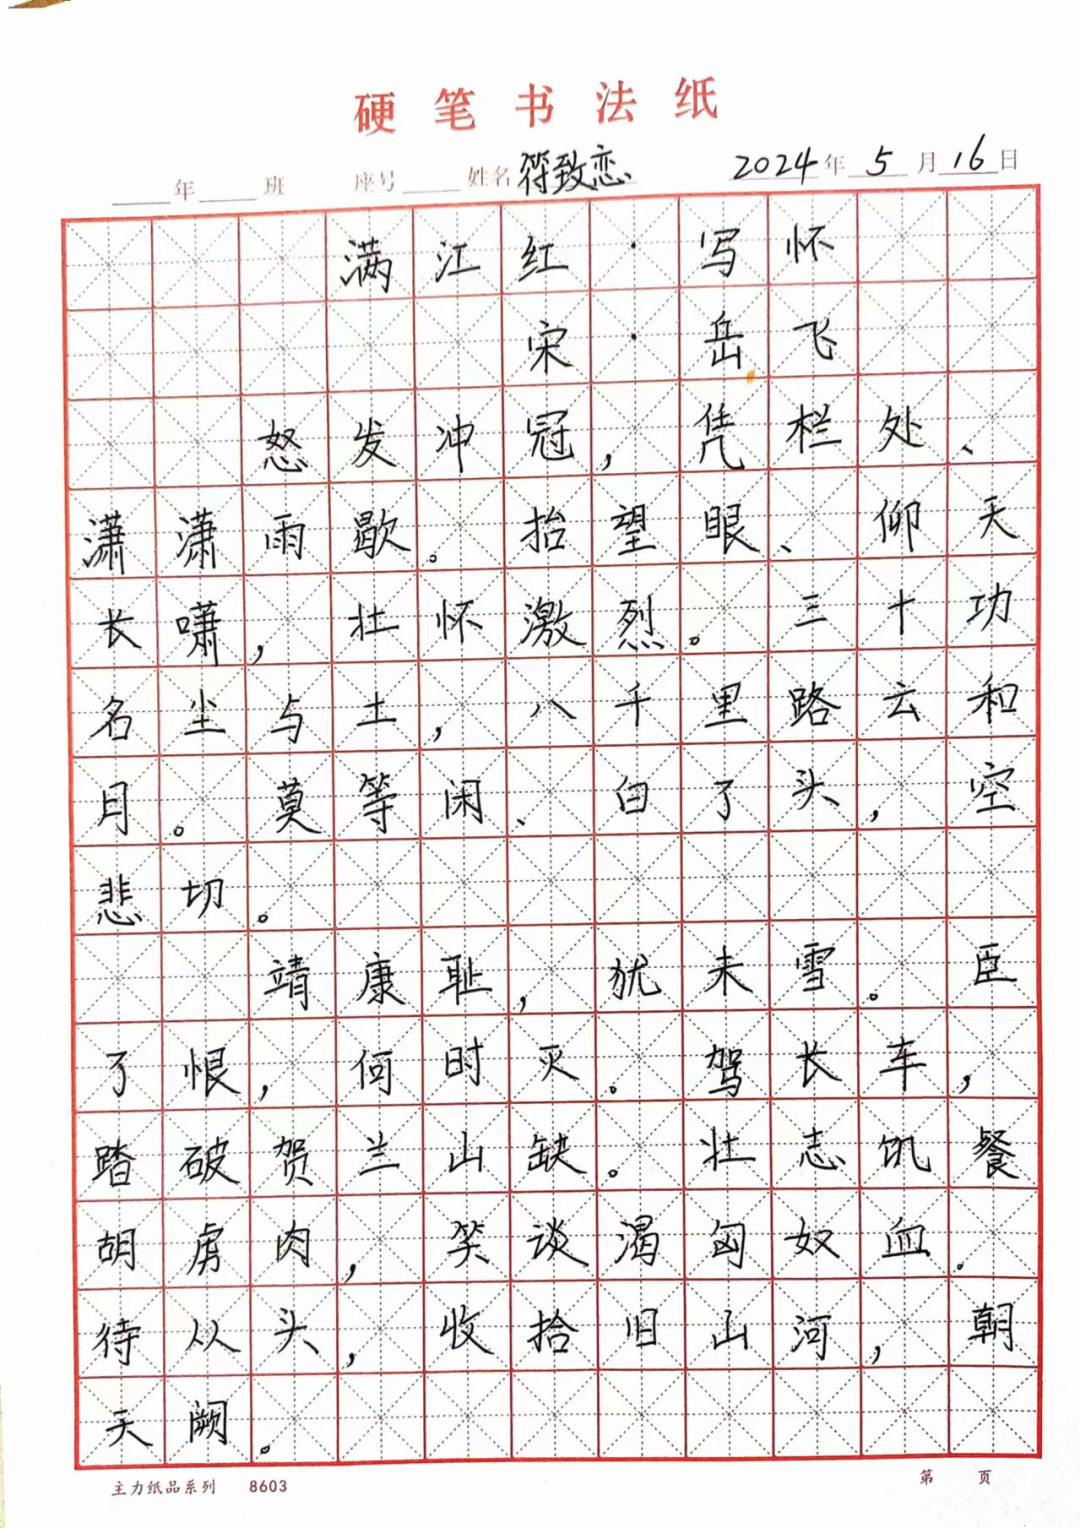 硬笔书法纸
年 班 座号 姓名 符致恋 2024年5月16日
满江红·写怀
宋·岳飞
怒发冲冠,凭栏处、
潇潇雨歇。抬望眼、仰天
长啸,壮怀激烈。三十功
名尘与土,八千里路云和
月。莫等闲、白了头,空
悲切。
靖康耻,犹未雪。臣
了恨,何时灭。驾长车,
踏破贺兰山缺。壮志饥餐
胡虏肉,笑谈渴匈奴血。
待从头,收拾旧山河,朝
天阙。
主力纸品系列 8603 第 页